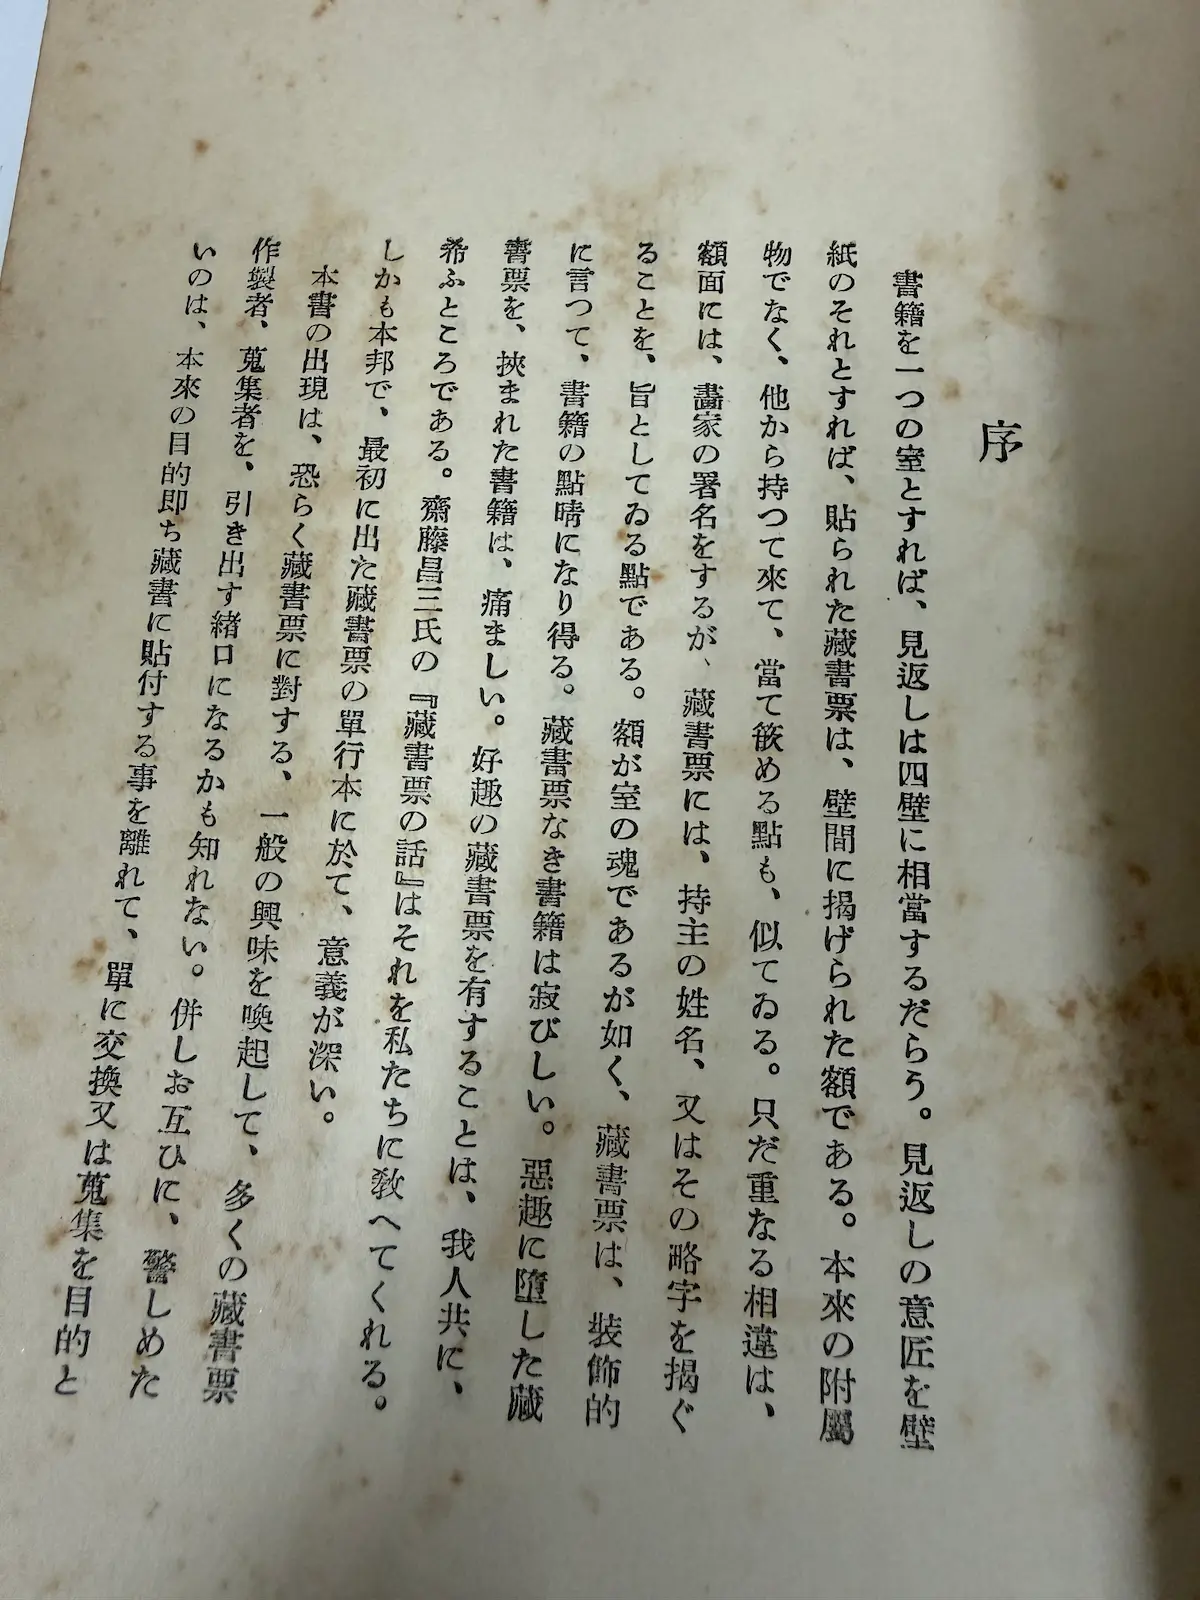 序
書籍を一つの室とすれば、見返しは四壁に相當するだらう。見返しの意匠を壁
紙のそれとすれば、貼られた藏書票は、壁間に揭げられた額である。本來の附屬
物でなく、他から持つて來て、當て篏める點も、似てゐる。只だ重なる相違は、
額面には、畵家の署名をするが、藏書票には、持主の姓名、又はその略字を揭ぐ
ることを、旨としてゐる點である。額が室の魂であるが如く、藏書票は、裝飾的
に言つて、書籍の點睛になり得る。藏書票なき書籍は寂びしい。惡趣に墮した藏
書票を、挾まれた書籍は、痛ましい。好趣の藏書票を有することは、我人共に、
希ふところである。齋藤昌三氏の『藏書票の話』はそれを私たちに敎へてくれる。
しかも本邦で、最初に出た藏書票の單行本に於て、意義が深い。
本書の出現は、恐らく藏書票に對する、一般の興味を喚起して、多くの藏書票
作製者、蒐集者を、引き出す緖口になるかも知れない。併しお互ひに、警しめた
いのは、本來の目的卽ち藏書に貼付する事を離れて、單に交換又は蒐集を目的と